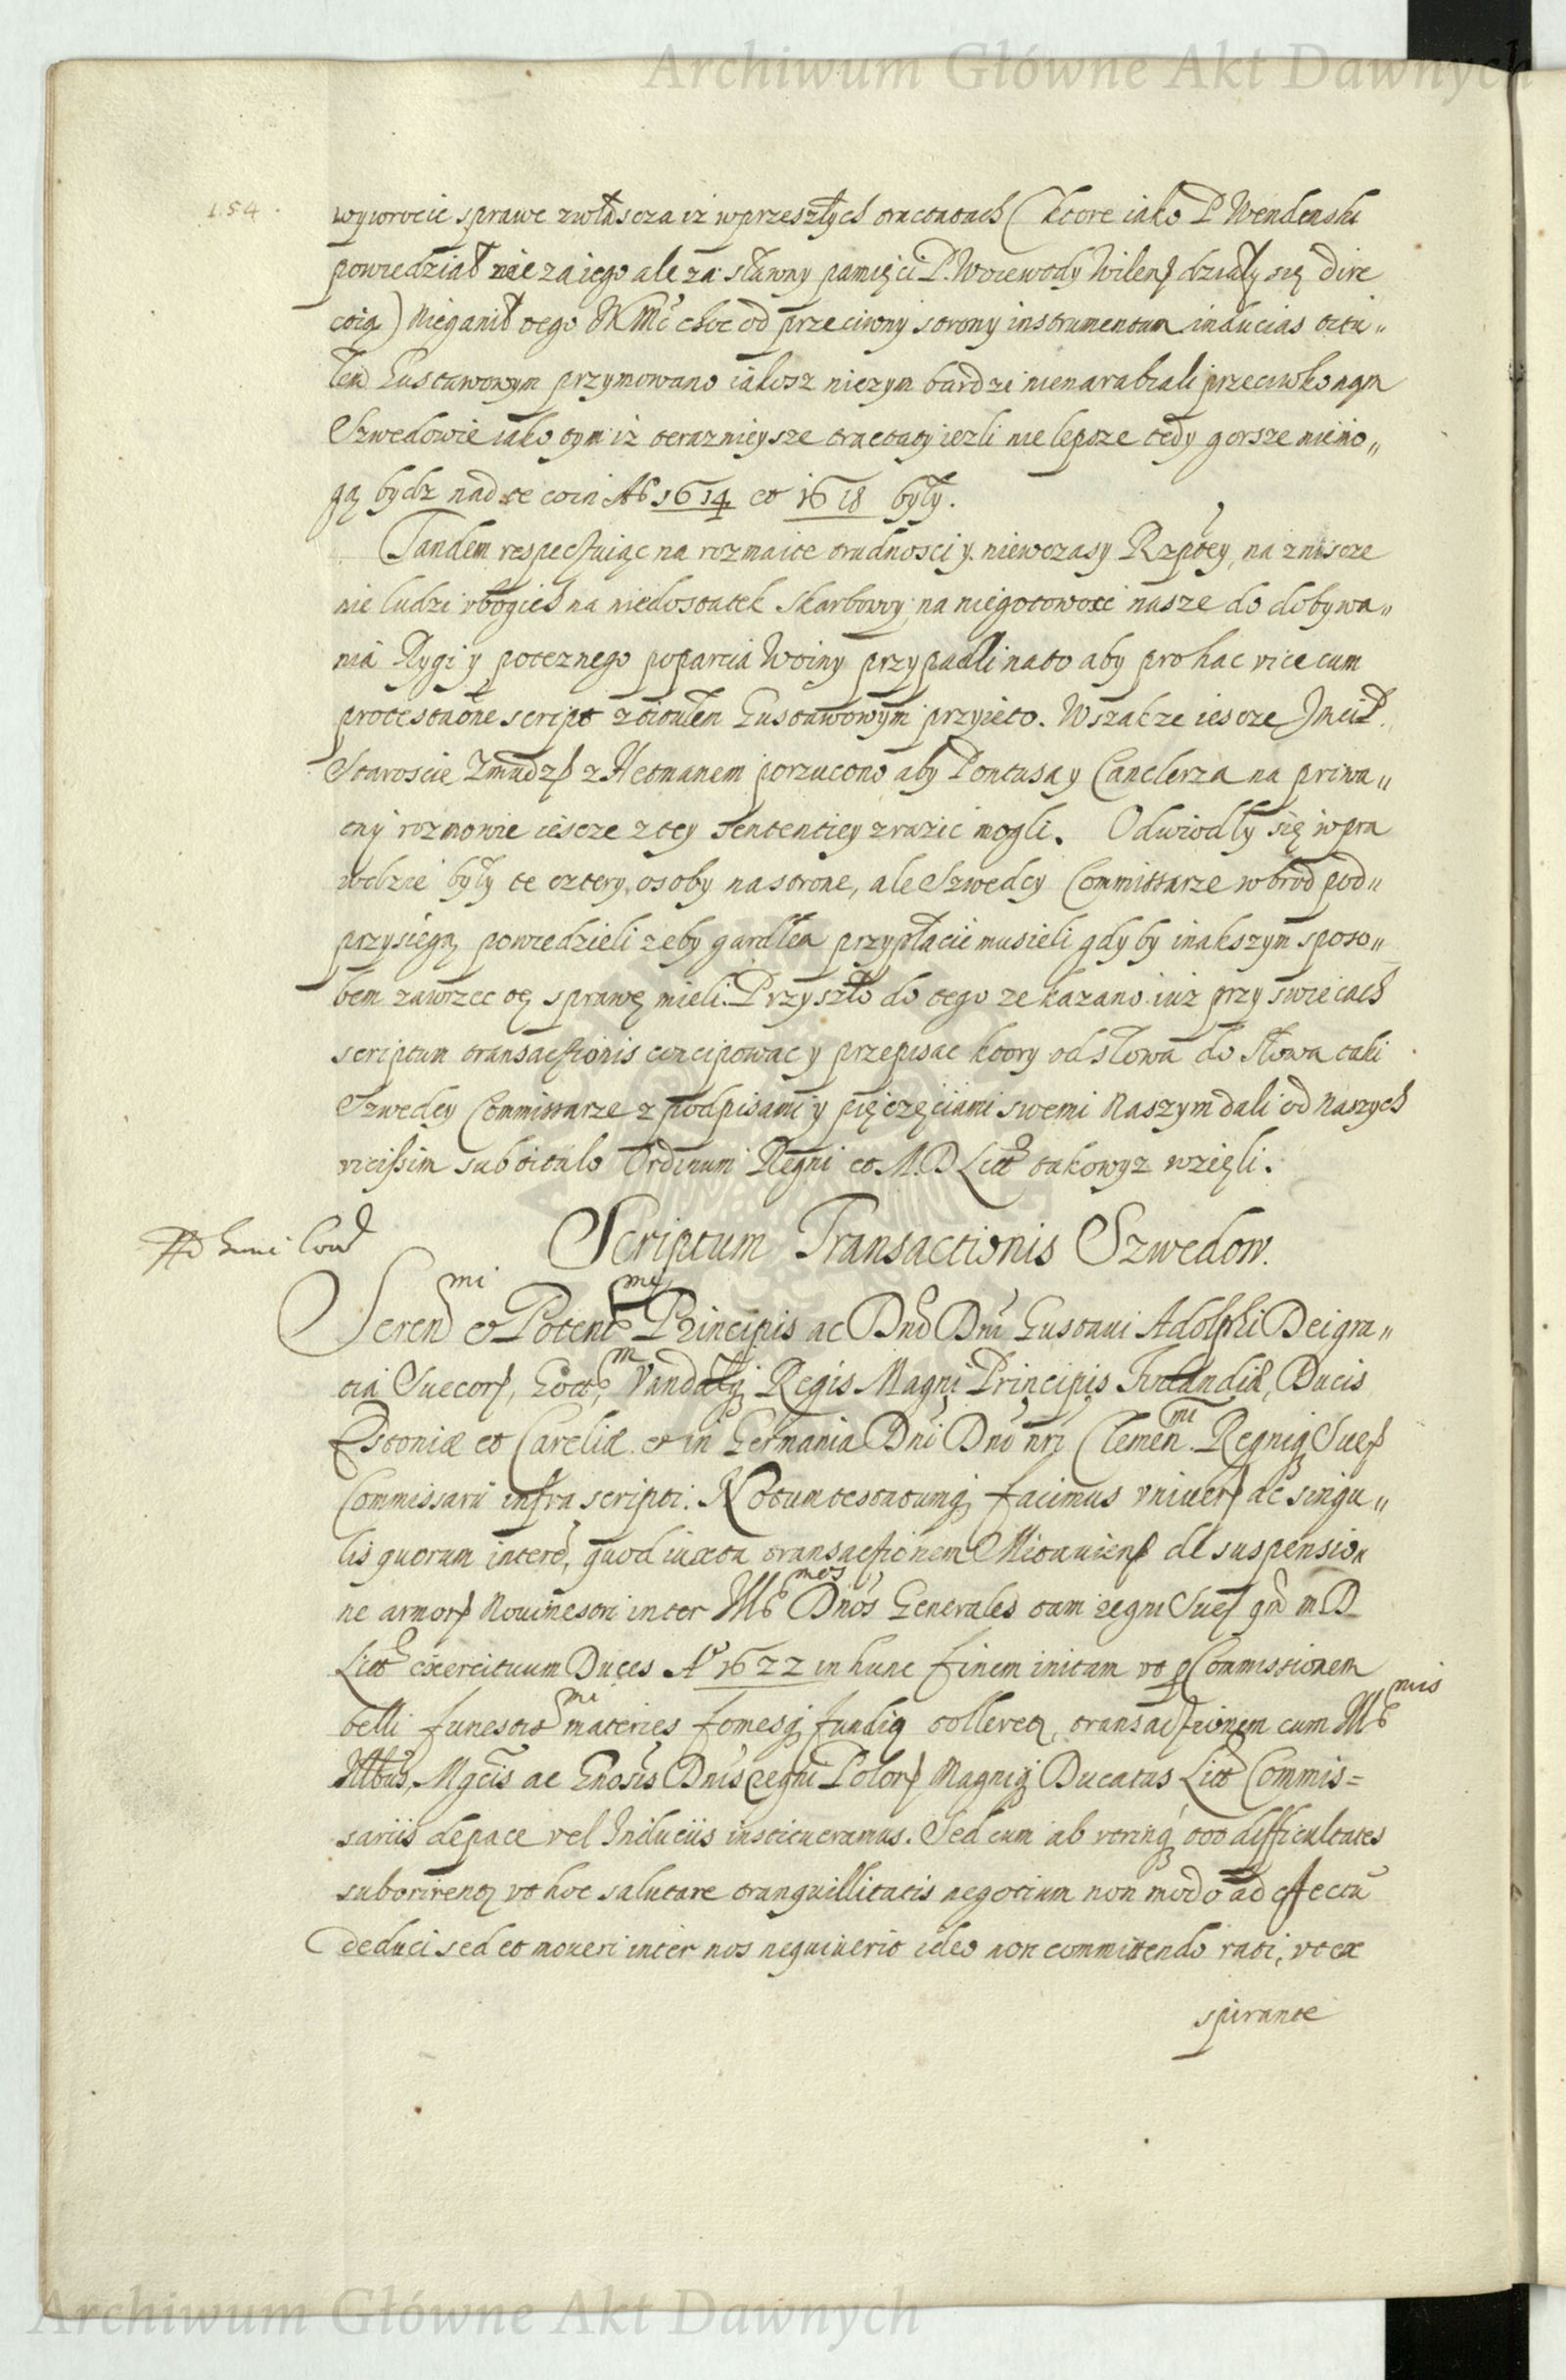 Archiwum Główne Akt Dawnych
154
wywrocic sprawe zwłascza iz wprzeszłych tractatach (ktore iako P Wendenski
powiedział nie za iego ale za sławny pamięci P. Woiewody Wilens działy się dire
ctią) nieganił tego JKMć choc od przeciwny strony instrumentum inducias titu„
łem Gustawowym przymowano iakosz niczym bardzi nienarabiali przeciwko nam
Szwedowie iako tym iz teraznieysze tractaty iezli nie lepsze tedy gorsze niemo„
gą bydz nad te co in Aº 1614 et 1618 były.
Tandem respectuiąc na rozmaite trudnosci y niewczasy Rzptey, na zniscze
nie ludzi vbogich na niedostatek Skarbowy, na niegotowosc nasze do dobywa„
nia Rygi y poteznego poparcia Woiny przypadli na to aby pro hac vice cum
protestaõne script z titułem Gustawowym przyieto. Wszakze iescze Jmci P.
Staroscie Zmudzs z Hetmanem porzucono aby Pontusa y Canclerza na priwa„
tny rozmowie iescze z tey sententiey zrazic mogli. Odwiodły się wpra
wdzie były te cztery osoby na strone, ale Szwedcy Commissarze wbrod pod„
przysięgą powiedzieli zeby gardłem przypłacic musieli gdyby inakszym sposo„
bem zawrzec tę sprawę mieli. Przyszło do tego ze kazano iuz przy swiecach
scriptum transactionis concipowac y przepisac ktory od słowa do słowa taki
Szwedcy Commissarze z podpisami y pięczęciami swemi Naszym dali od Naszych
vicissim sub titulo Ordinum Regni et M. D Litt takowyz wzięli.
Scriptum Transactionis Szwedow.
Seren mi et Potent mi Principis ac Dnd Dni Gustaui Adolphi Dei gra„
tia Suecor, Gott, Vandalq Regis Magni Principis Finlandiæ, Ducis
Estoniæ et Careliæ et in Germania Dni Dni nri Clemen mi Regniq Suet
Commissarii infra scripti. Notum testatumq facimus vniuers ac singu„
lis quorum intere, quod iuxta transactionem Mitauiens de suspensio
ne armor Nouimestri inter Ill mos Dnos Generales tam regni Suet qm m D
Litt exercituum Duces Aº 1622 in hunc finem initam vt p Commissionem
belli funestis mi materies fomesq funditq tolleretq, transactionem cum Ill mis
Illbus, Mgcis ac Gnosis Dnis regni Polor Magniq Ducatus Litt Commis=
sariis de pace vel Induciis institueramus. Sed cum ab vtrinq tot difficultates
suborirentq vt hoc salutare tranquillitatis negotium non modo ad effectū
deduci sed et moueri inter nos nequiuerit ideo non committendo rati, vt ex
spirante
Archiwum Główne Akt Dawnych